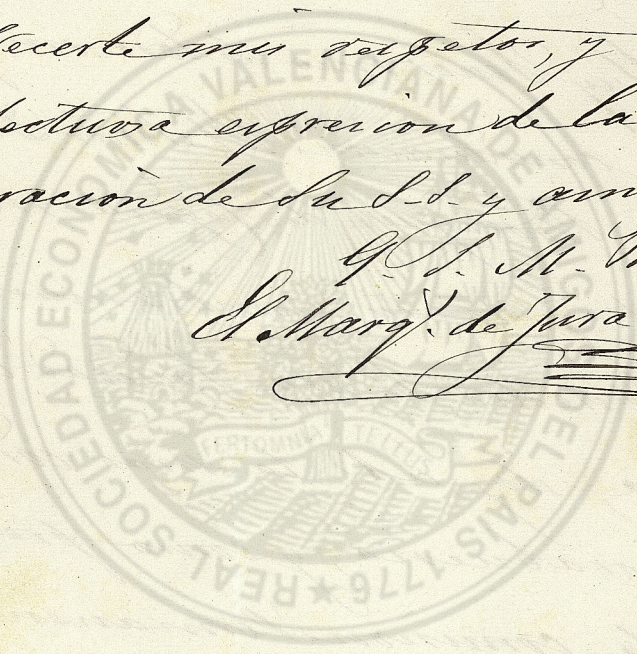 ecerle mis respetos, y
fectuosa expresion de la
ración de Su S. S. y am
Q. S. M.
El Marq.s de Jura
REAL SOCIEDAD ECONOMICA VALENCIANA DE AMIGOS DEL PAIS 1776
FERT OMNIA TELLUS